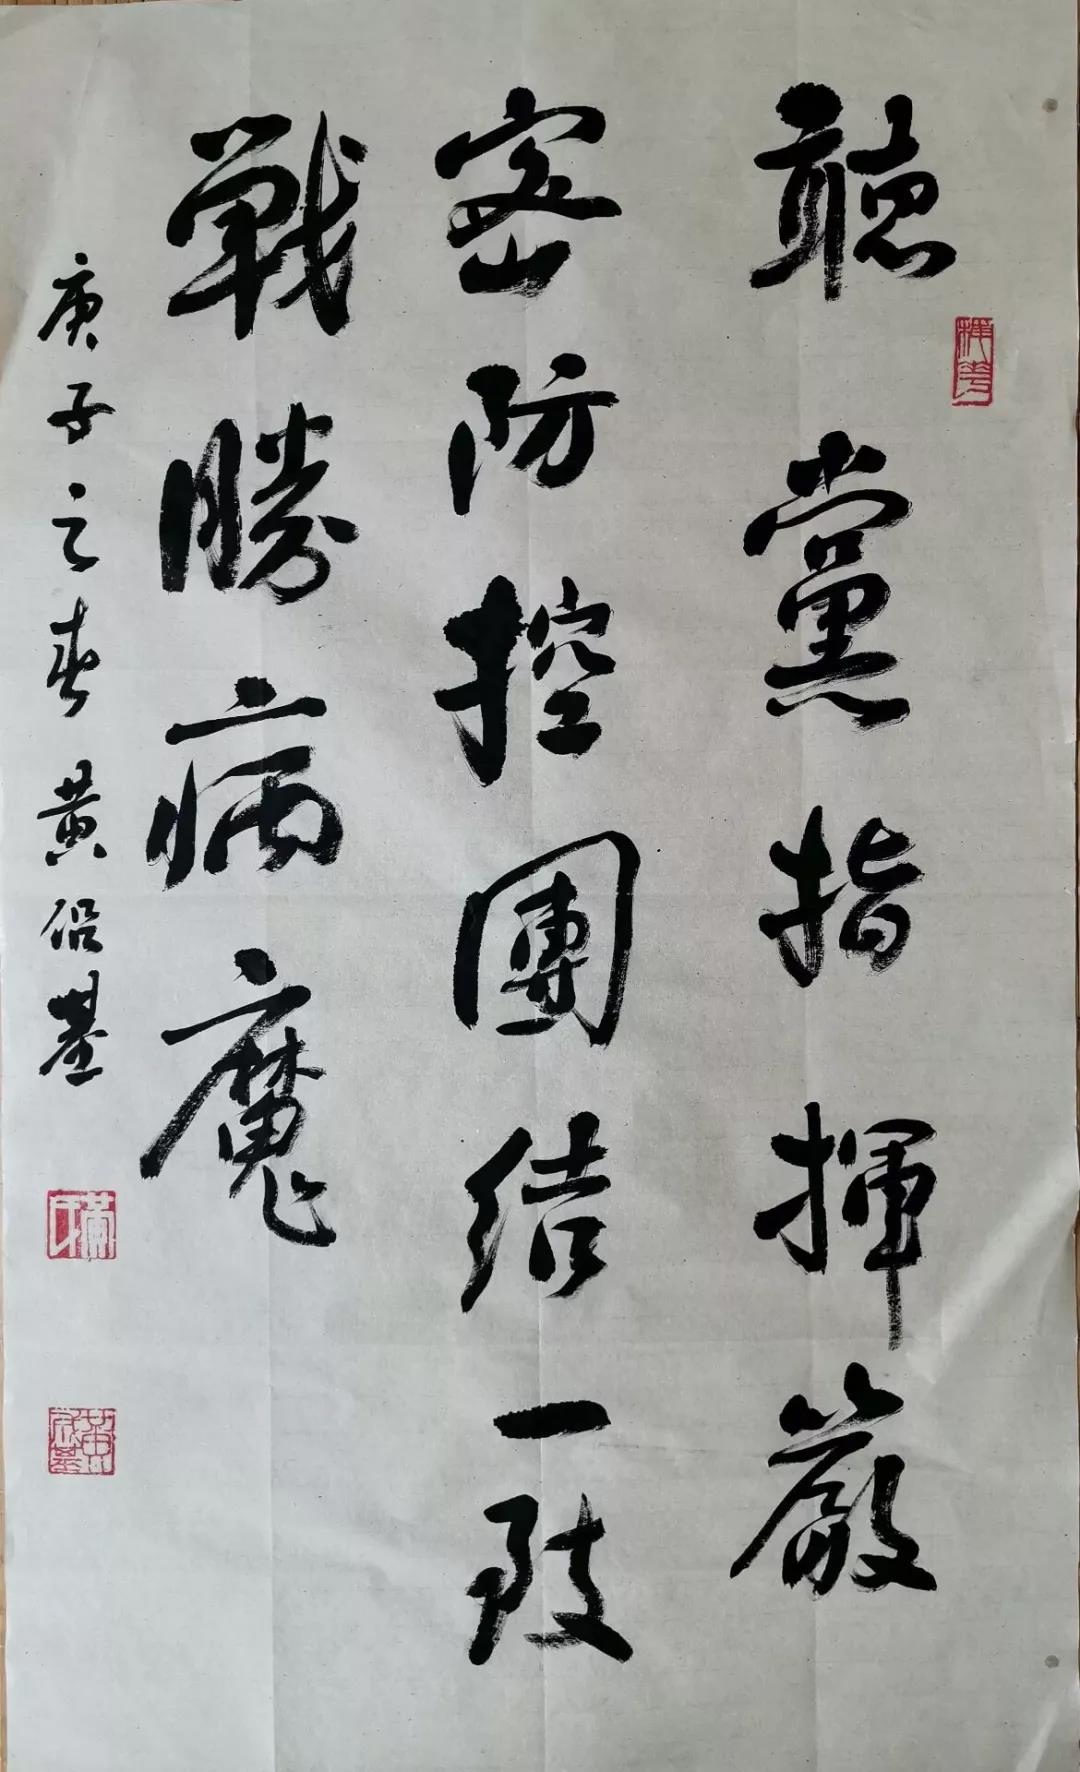 聽黨指揮嚴
密防控團結一致
戰勝病魔
庚子之春 黃紹基